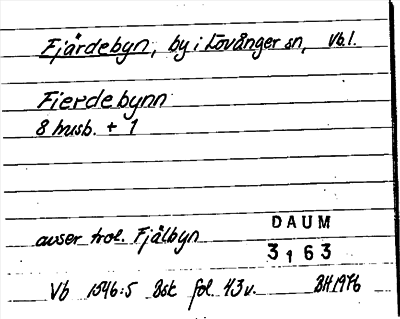 Fjärdebyn, by i Lövånger sn, Vb.l.
Fierdebynn
8 husb. + 1
avser trol. Fjälbyn
DAUM
3163
Vb 1546:5 Bsk fol. 43v. BH1976